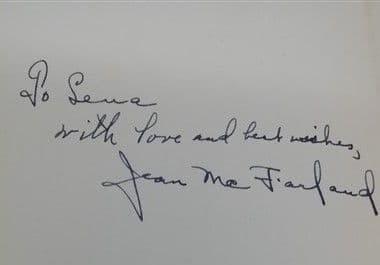 To Lena
with love and best wishes,
Jean Mc Farland